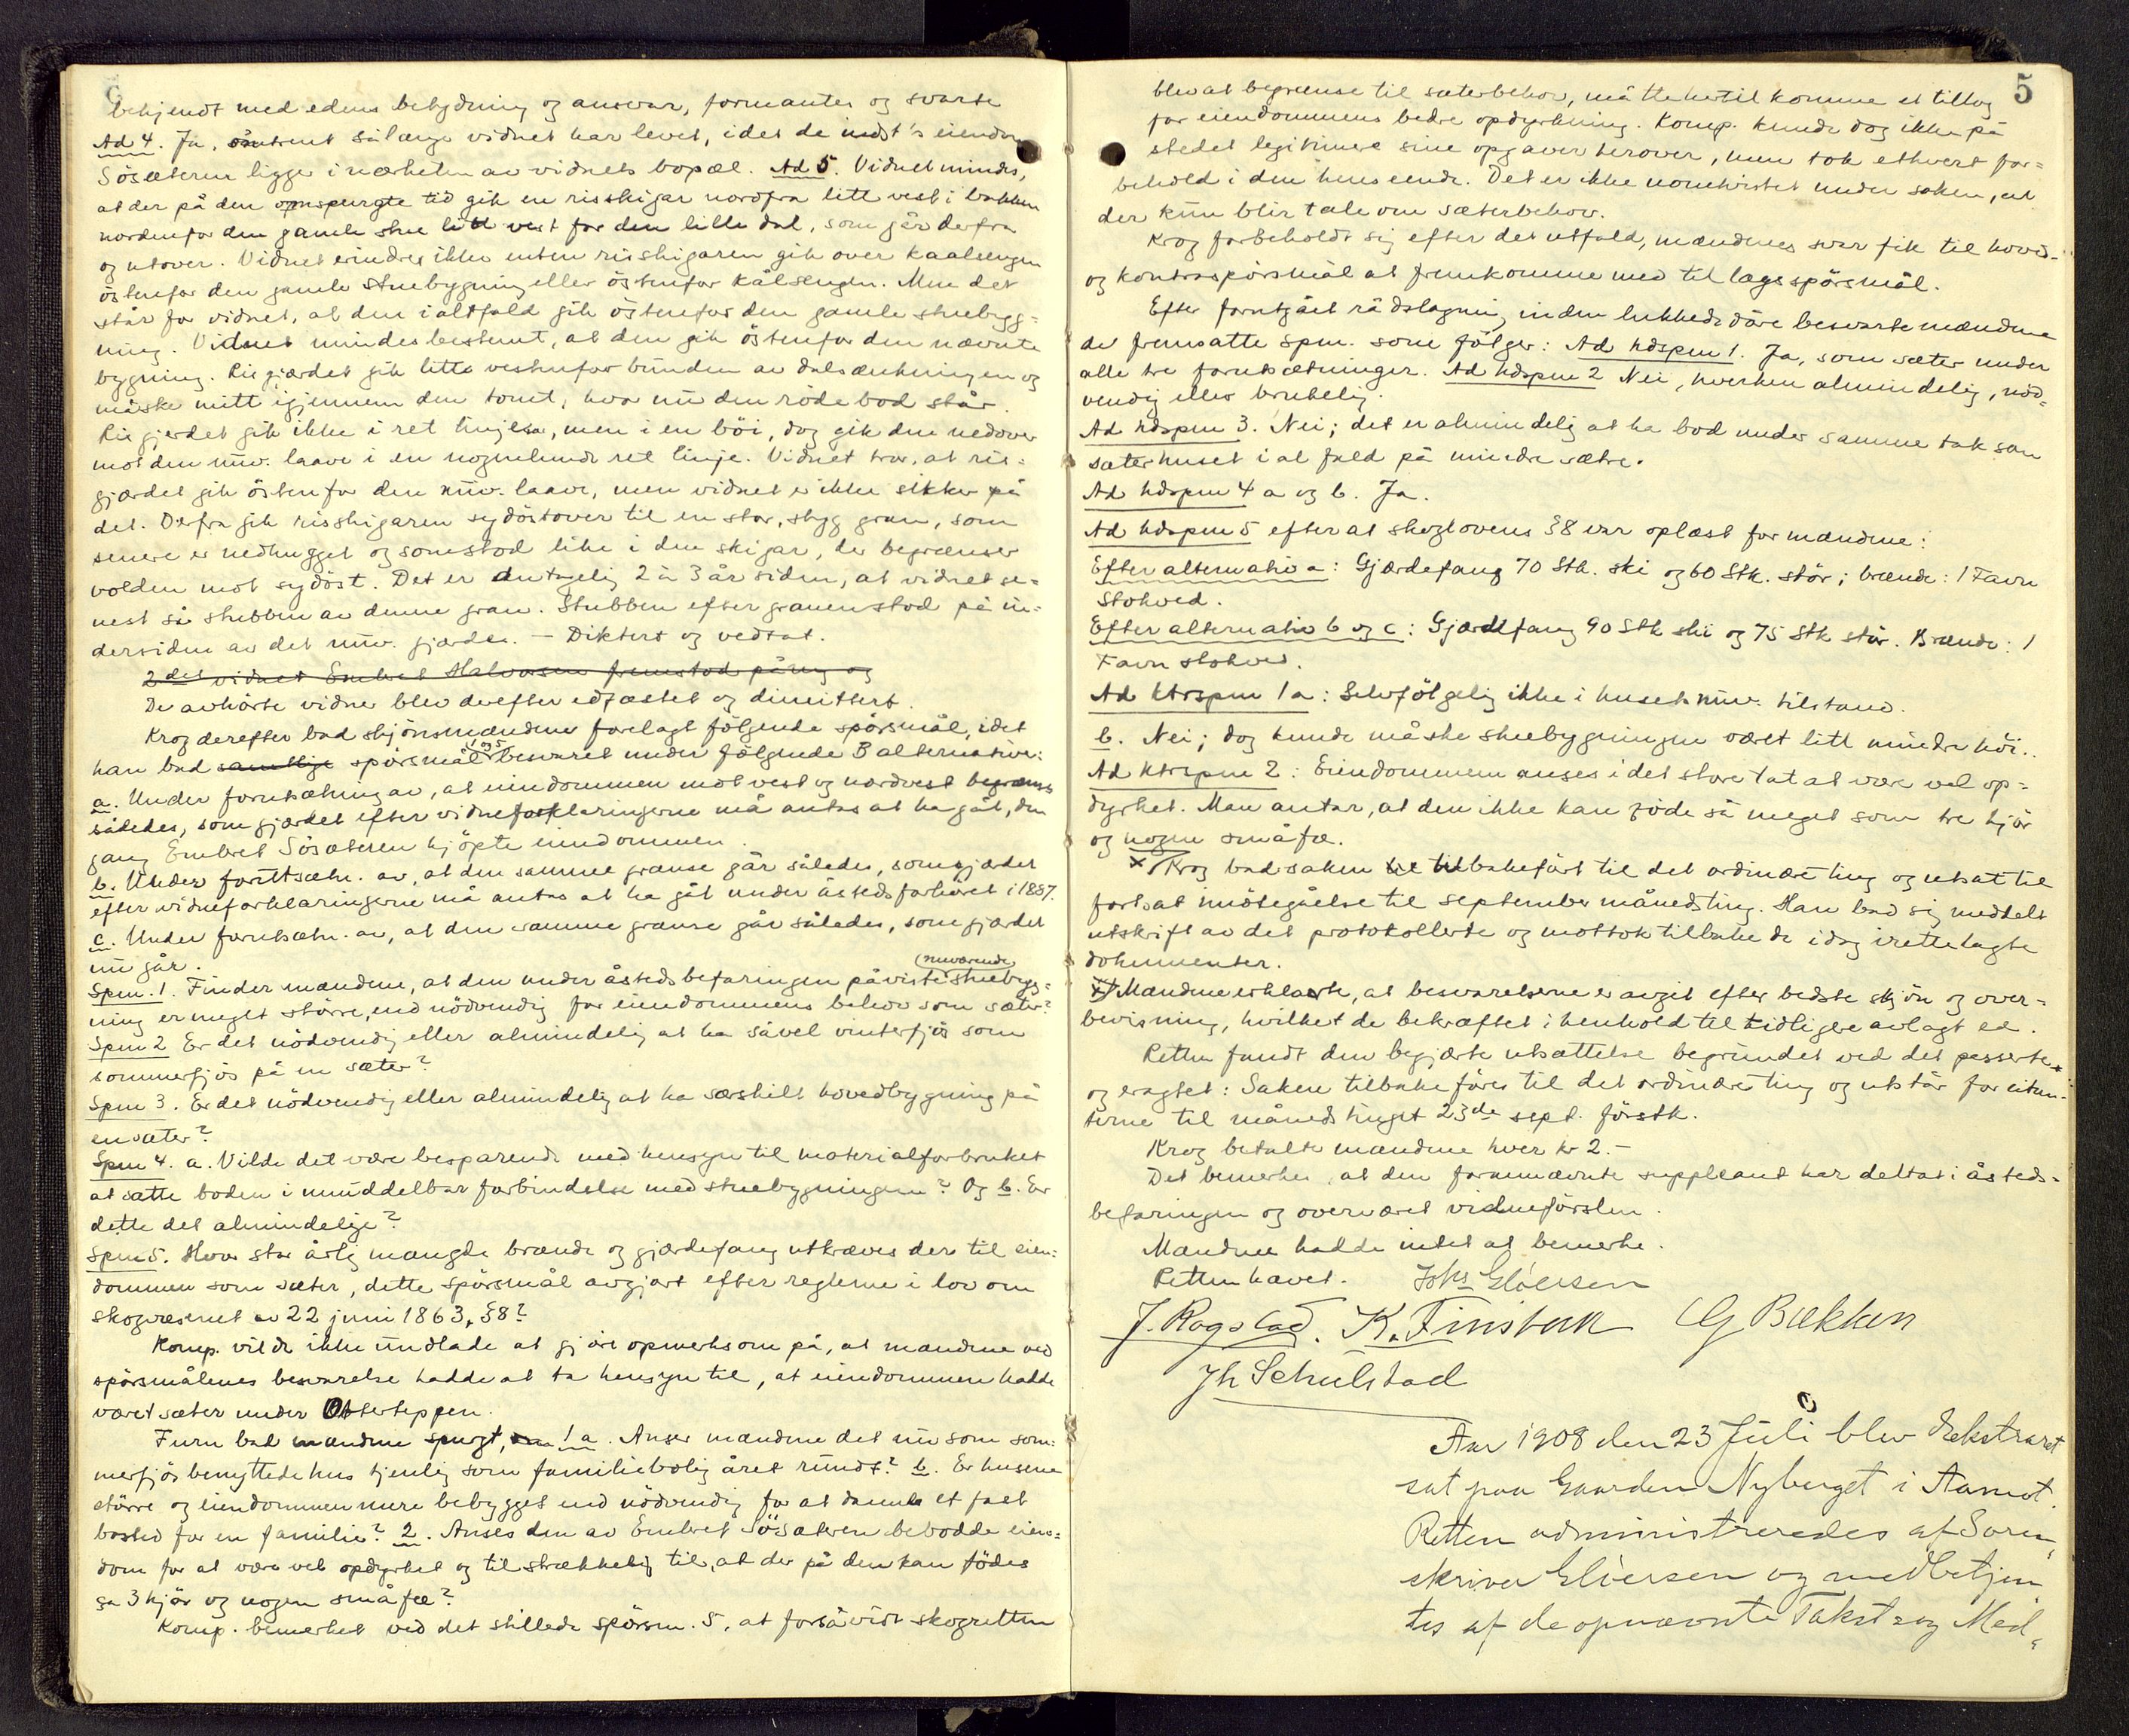 bekjendt med edens betydning og ansvar, formantes og svarte
Ad 4. Ja, omtrent sålænge vidnet har levet, idet de indst's eiendom
Sösæteren ligger i nærheten av vidnets bopæl. Ad 5. Vidnet mindes,
at der på den omspurgte tid gik en risskigar nordfra litt vest i bakken
nordenfor den gamle stue litt vest for den lille dal, som går derfra
og utover. Vidnet erindrer ikke enten risskigaren gik over kaalsengen
östenfor den gamle stuebygning eller östenfor kålsengen. Men det
står for vidnet, at den i altfald gik östenfor den gamle stuebygg=
ning. Vidnet mindes bestemt, at den gik östenfor den nævnte
bygning. Risgjærdet gik litt vestenfor bunden av dalsænkningen og
måske mitt igjennem den tomt, hvor nu den röde bod står.
Risgjerdet gik ikke i ret linje, men i en böi, dog gik den nedover
mot den nuv. laave i en nogenlunde ret linje. Vidnet tror, at ris=
gjærdet gik östenfor den nuv. laave, men vidnet er ikke sikker på
det. Derfra gik risskigaren sydöstover til en stor, stygg gran, som
senere er nedhugget og som stod like i den skigar, der begrænser
volden mot sydöst. Det er antagelig 2 à 3 år siden, at vidnet se=
nest så stubben av denne gran. Stubben efter granen stod på in=
dersiden av det nuv. gjærde. – Diktert og vedtat.
2det vidnet Embret Halvorsen fremstod påny og
De avhörte vidner blev derefter edfæstet og dimittert.
Krog derefter bad skjönsmændene forelagt fölgende spörsmål, idet
han bad samtlige spörsmål 1 og 5 besvaret under fölgende 3 alternativer:
a. Under forutsætning av, at eiendommen mot vest og nordvest begrænses
således, som gjærdet efter vidneforklaringerne må antas at ha gåt, den
gang Embret Sösæteren kjöpte eiendommen.
b. Under forutsætn. av, at den samme grænse går således, som gjærdet
efter vidneforklaringerne må antas at ha gåt under åstedsforhöret i 1887.
c. Under forutsætn. av, at den samme grænse går således, som gjærdet
nu går.
Spm. 1. Finder mændene, at den under åstedsbefaringen påviste (nuværende) stuebyg=
ning er meget större, end nödvendig for eiendommens behov som sæter?
Spm 2 Er det nödvendig eller almindelig at ha såvel vinterfjös som
sommerfjös på en sæter?
Spm 3. Er det nödvendig eller almindelig at ha særskilt hovedbygning på
en sæter?
Spm 4. a. Vilde det være besparende med hensyn til materialforbruket
at sætte boden i umiddelbar forbindelse med stuebygningen? Og b. Er
dette det almindelige?
Spm 5. Hvor stor årlig mængde brænde og gjærdefang utkræves der til eien=
dommen som sæter, dette spörsmål avgjort efter reglerne i lov om
skogvæsenet av 22 juni 1863, §8?
Komp. vilde ikke undlade at gjöre opmerksom på, at mændene ved
spörsmålenes besvarelse hadde at ta hensyn til, at eiendommen hadde
været sæter under Otterteppen.
Furu bad mændene spurgt, 1 a. Anser mændene det nu som som=
merfjös benyttede hus tjenlig som familiebolig året rundt? b. Er husene
större og eiendommen mere bebygget end nödvendig for at danne et fast
bosted for en familie? 2. Anses den av Embret Sösæteren bebodde eien=
dom for at være vel opdyrket og tilstrækkelig til, at der på den kan födes
ca 3 kjör og nogen småfæ?
Komp. bemerket ved det stillede spörsm. 5, at forsåvidt skogretten
5
blev at begrænse til sæterbehov, måtte hertil komme et tillæg
for eiendommens bedre opdyrkning. Komp. kunde dog ikke på
stedet legitimere sine opgaver herover, men tok ethvert for=
behold i den henseende. Det er ikke under saken, at
der kun blir tale om sæterbehov.
Krog forbeholdt sig efter det utfald, mændenes svar fik til hoved-
og kontraspörsmål at fremkomme med tillægsspörsmål.
Efter forutgået rådslagning inden lukkede döre besvarte mændene
de fremsatte spm. som fölger: Ad hdspm 1. Ja, som sæter under
alle tre forutsætninger. Ad hdspm 2 Nei, hverken almindelig, nöd=
vendig eller brukelig.
Ad hdspm 3. Nei; det er almindelig at ha bod under samme tak som
sæterhuset i al fald på mindre sætre.
Ad hdspm 4 a og b. Ja.
Ad hdspm 5 efter at skoglovens §8 var oplæst for mændene:
Efter alternativ a: Gjærdefang 70 Stk. ski og 60 Stk. stör; brænde: 1 Favn
stokved.
Efter alternativ b og c: Gjærdefang 90 Stk ski og 75 Stk stör. Brænde: 1
Favn stokved.
Ad ktrspm 1 a: Selvfölgelig ikke i husets nuv. tilstand.
b. Nei; dog kunde måske stuebygningen været litt mindre höi.
Ad ktrspm 2: Eiendommen anses i det store tat at være vel op=
dyrket. Man antar, at den ikke kan föde så meget som tre kjör
og nogen småfæ.
x Krog bad saken tilbakeført til det ordinære ting og utsat til
fortsat imötegåelse til september månedsting. Han bad sig meddelt
utskrift av det protokollerte og mottok tilbake de idag irettelagte
dokumenter.
x) Mændene erklærte, at besvarelserne er avgit efter bedste skjön og over=
bevisning, hvilket de bekræftet i henhold til tidligere avlagt ed.
Retten fandt den begjærte utsættelse begrundet ved det passerte
og eragtet: Saken tilbakeföres til det ordinære ting og utstår for citan-
terne til månedstinget 23de sept. förstk.
Krog betalte mændene hver kr 2.–
Det bemerkes, at den fornævnte suppleant har deltat i åsteds=
befaringen og overværet vidneförslen.
Mændene hadde intet at bemerke.
Retten hævet. Johs Gløersen
J. Rogstad. K. Finsbak G Bækken
Jh Schulstad
Aar 1908 den 23 Juli blev Ekstraret
sat paa Gaarden Nyberget i Aamot.
Retten administreredes af Soren,
skriver Gløersen og medbetjen
tes af de opnævnte Takst og Med,